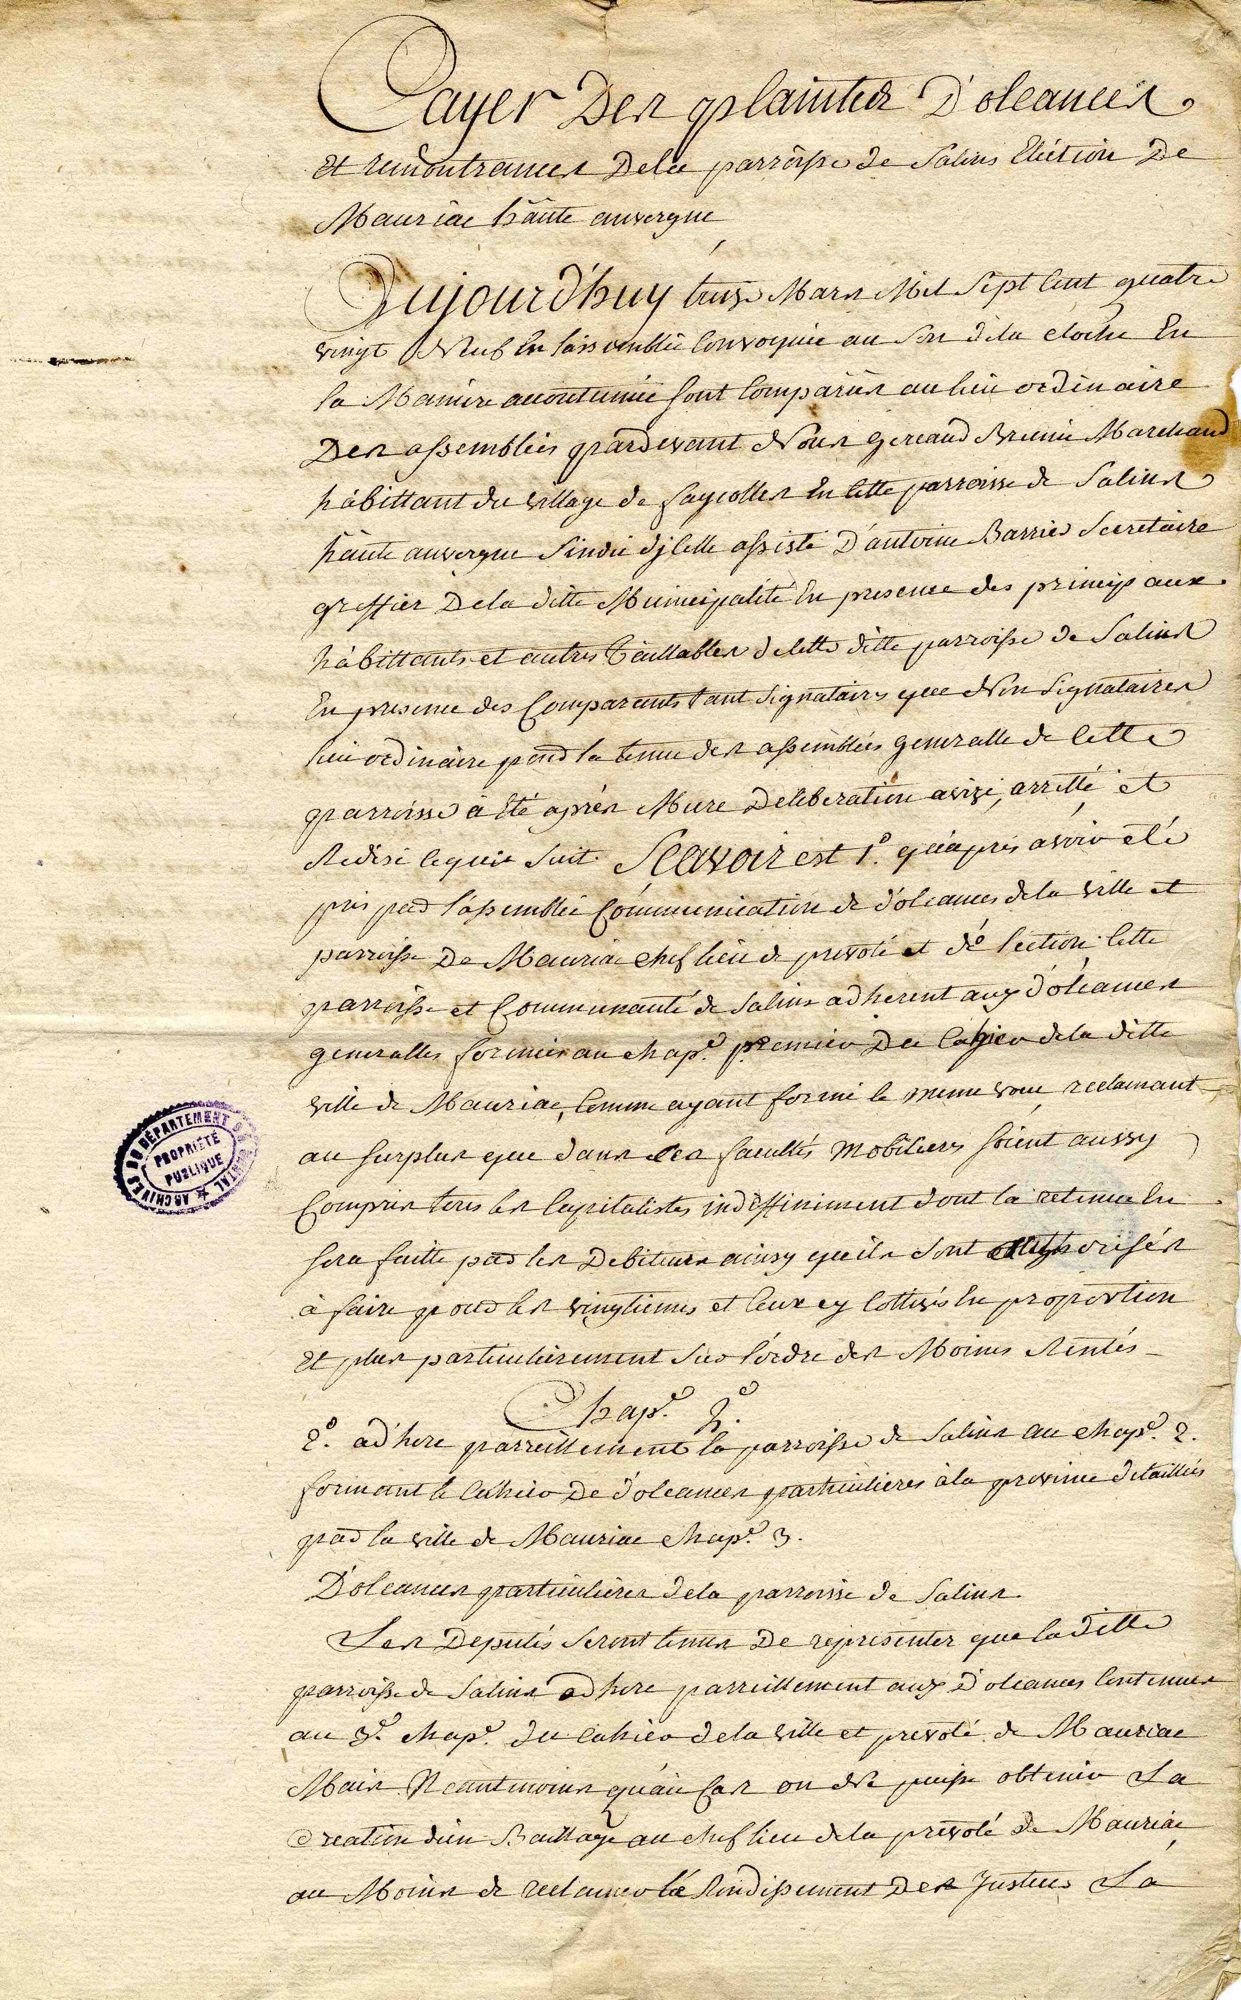 Cayer Des plaintes D'oleances
Et remontrances Dela parroisse de Salins Election De
Mauriac haute auvergne
Aujourd'huy treize Mars Mil Sept Cent quatre
vingt Neuf En l'assemblée Convoquée au Son dela cloche En
la Maniere acoutumée sont Comparus au lieu ordinaire
Des assemblées pardevant Nous Geraud Marchand
habittant du village de En Cette parroisse de Salins
haute auvergne Sindic d'jcelle assisté D'antoine Barrier Secretaire
greffier Dela ditte Municipalité En presence des principaux
habittants et autres Taillables de Cette ditte parroisse de Salins
En presence des Comparants tant Signataires que Non Signataires
lieu ordinaire pour la tenue des assemblées generalle de Cette
parroisse à Eté après Mure Deliberation avizé, arretté et
Redigé ce qui Suit. Scavoir est 1.° qu'apres avoir été
pris par l'assemblée Communication de d'oleances dela ville et
parroisse De Mauriac chef lieu de prevoté et d'é lection, Cette
parroisse et Communauté de Salins adherent aux d'oleances
generalles formées au chap.e premier Du Cahier dela ditte
ville de Mauriac, Comme ayant formé le meme voeu, reclamant
au surplus que dans les facultés mobiliers soient aussy
Compris tous les Capitalistes indeffiniment dont la retenue En
sera faitte par les Debiteurs ainsy qu'ils sont authorisés
à faire pour les vingtiemes et Ceux cy Cottisés En proportion
Et plus particulierement sur l'ordre des Moines Rentés
Chap.e 2.e
2.° adhere parreillement la parroisse de Salins au chap.e 2.
formant le Cahier De d'oleances particulieres à la province detaillées
par la ville de Mauriac Chap.e 3.
D'oleances particulieres dela parroisse de Salins.
Les Deputés Seront tenus De representer que la ditte
parroisse de Salins adhere parreillement aux D'oleances Contenues
au 3.e chap.e du Cahier dela ville et prevoté de Mauriac
Mais Neantmoins qu'au Cas on Ne puisse obtenir La
Creation d'un Baillage au chef lieu dela prevoté de Mauriac
au Moins de reclamer Des Justices La
ARCHIVES DU DÉPARTEMENT DU CANTAL
PROPRIÉTÉ
PUBLIQUE